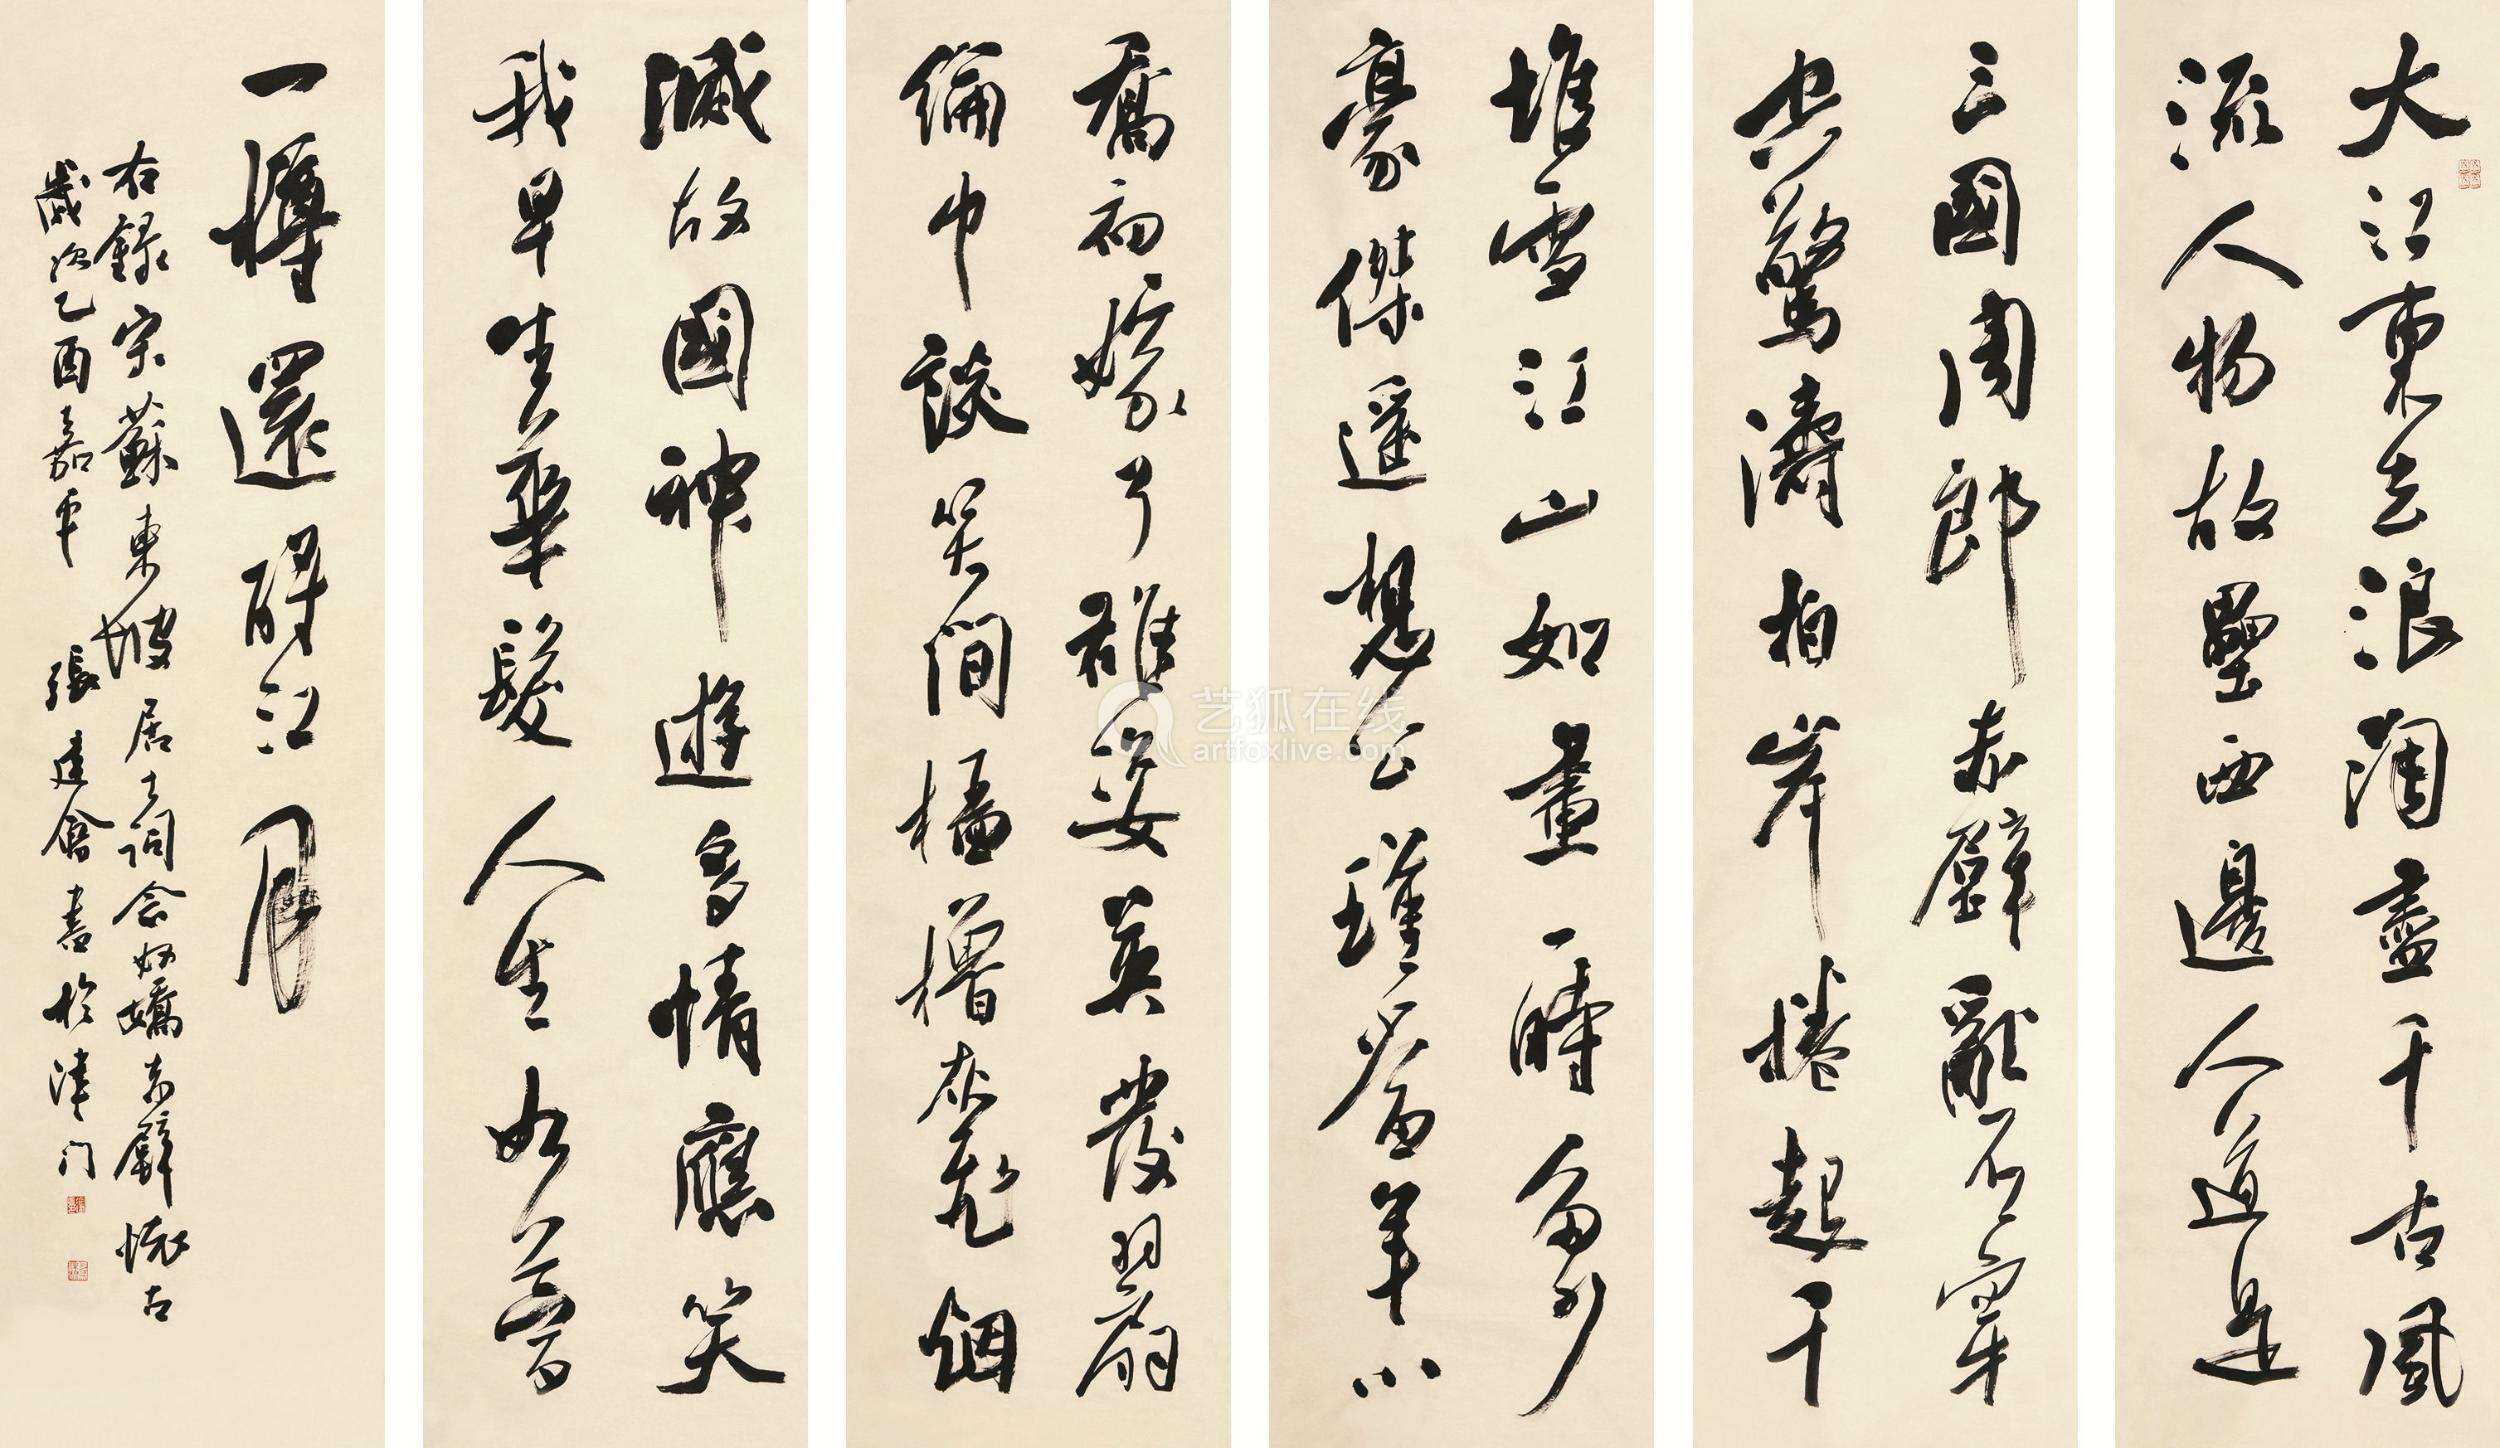 大江東去浪淘盡千古風
流人物故壘西邊人道是
三國周郎赤壁亂石穿
空驚濤拍岸捲起千
堆雪江山如畫一時多少
豪傑遥想公瑾當年小
喬初嫁了雄姿英發羽扇
綸巾談笑間檣櫓灰飛烟
滅故國神遊多情應笑
我早生華髮人生如夢
一樽還酹江月
右録宋蘇東坡居士詞念奴嬌赤壁懷古
歲次乙酉嘉平 張建會書於津门
艺狐在线
artfoxlive.com